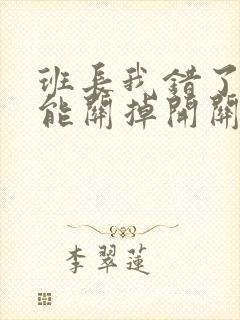 班長我錯了
能關掉開關
李翠蓮